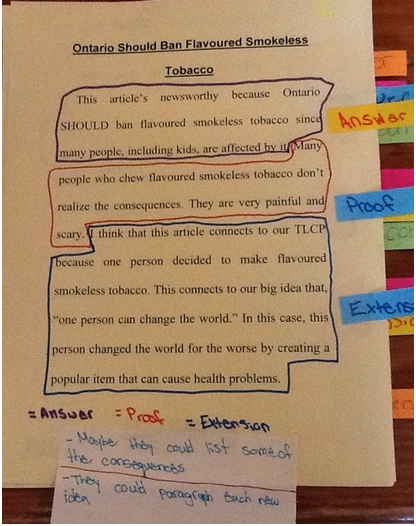 Ontario Should Ban Flavoured Smokeless
Tobacco
This article's newsworthy because Ontario
SHOULD ban flavoured smokeless tobacco since
many people, including kids, are affected by it. Many
people who chew flavoured smokeless tobacco don't
realize the consequences. They are very painful and
scary. I think that this article connects to our TLCP
because one person decided to make flavoured
smokeless tobacco. This connects to our big idea that,
“one person can change the world.” In this case, this
person changed the world for the worse by creating a
popular item that can cause health problems.
Answer
Proof
= Answer = Proof = Extension
- Maybe they could list some of
the consequences
- They could paragraph each new
idea